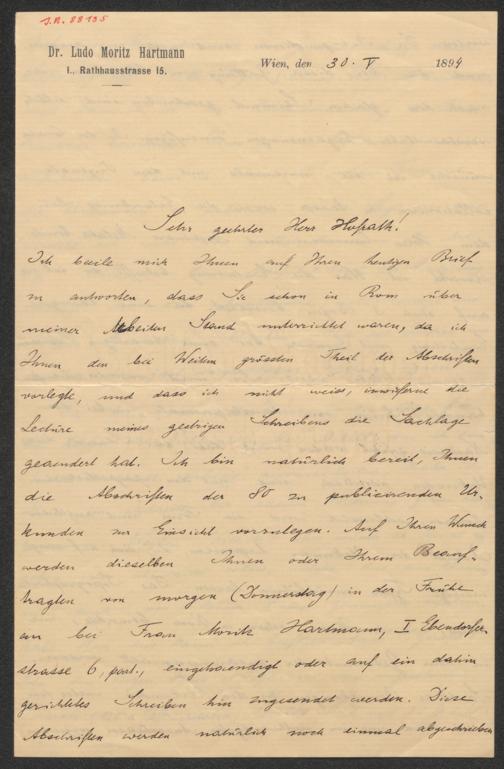 J.N. 88135
Dr. Ludo Moritz Hartmann
I., Rathhausstrasse 15.
Wien, den 30. V 1894
Sehr geehrter Herr Hofrath!
Ich beeile mich Ihnen auf Ihren heutigen Brief
zu antworten, dass Sie schon in Rom über
meiner Arbeiten Stand unterrichtet waren, da ich
Ihnen den bei Weitem grössten Theil der Abschriften
vorlegte, und dass ich nicht weiss, inwiefern die
Lectüre meines gestrigen Schreibens die Sachlage
geaendert hat. Ich bin natürlich bereit, Ihnen
die Abschriften der 80 zu publicirenden Ur-
kunden zur Einsicht vorzulegen. Auf Ihren Wunsch
werden dieselben Ihnen oder Ihrem Beauf-
tragten von morgen (Donnerstag) in der Frühe
an bei Frau Moritz Hartmann, I Ebendorfer-
strasse 6, part., eingehaendigt oder auf ein dahin
gerichtetes Schreiben hin zugesendet werden. Diese
Abschriften werden natürlich noch einmal abgeschrieben